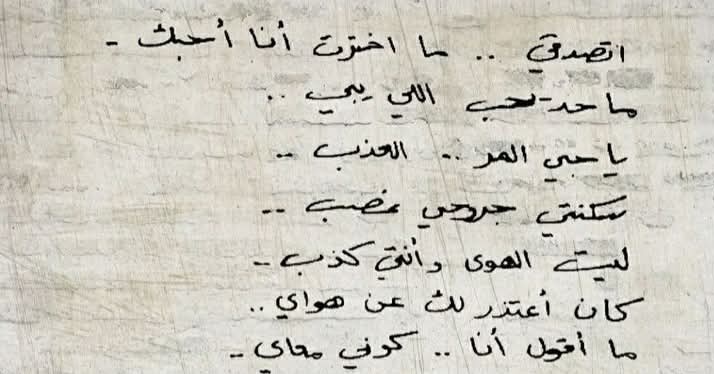 اتصدقي .. ما اخترت أنا أحبك -
ماحد يحب اللي يبي ..
ياحبي المر .. العذب ..
سكنتي جروحي غصب ..
ليت الهوى وأنتي كذب ..
كان أعتذر لك عن هواي ..
ما أقول أنا .. كوني معاي ..